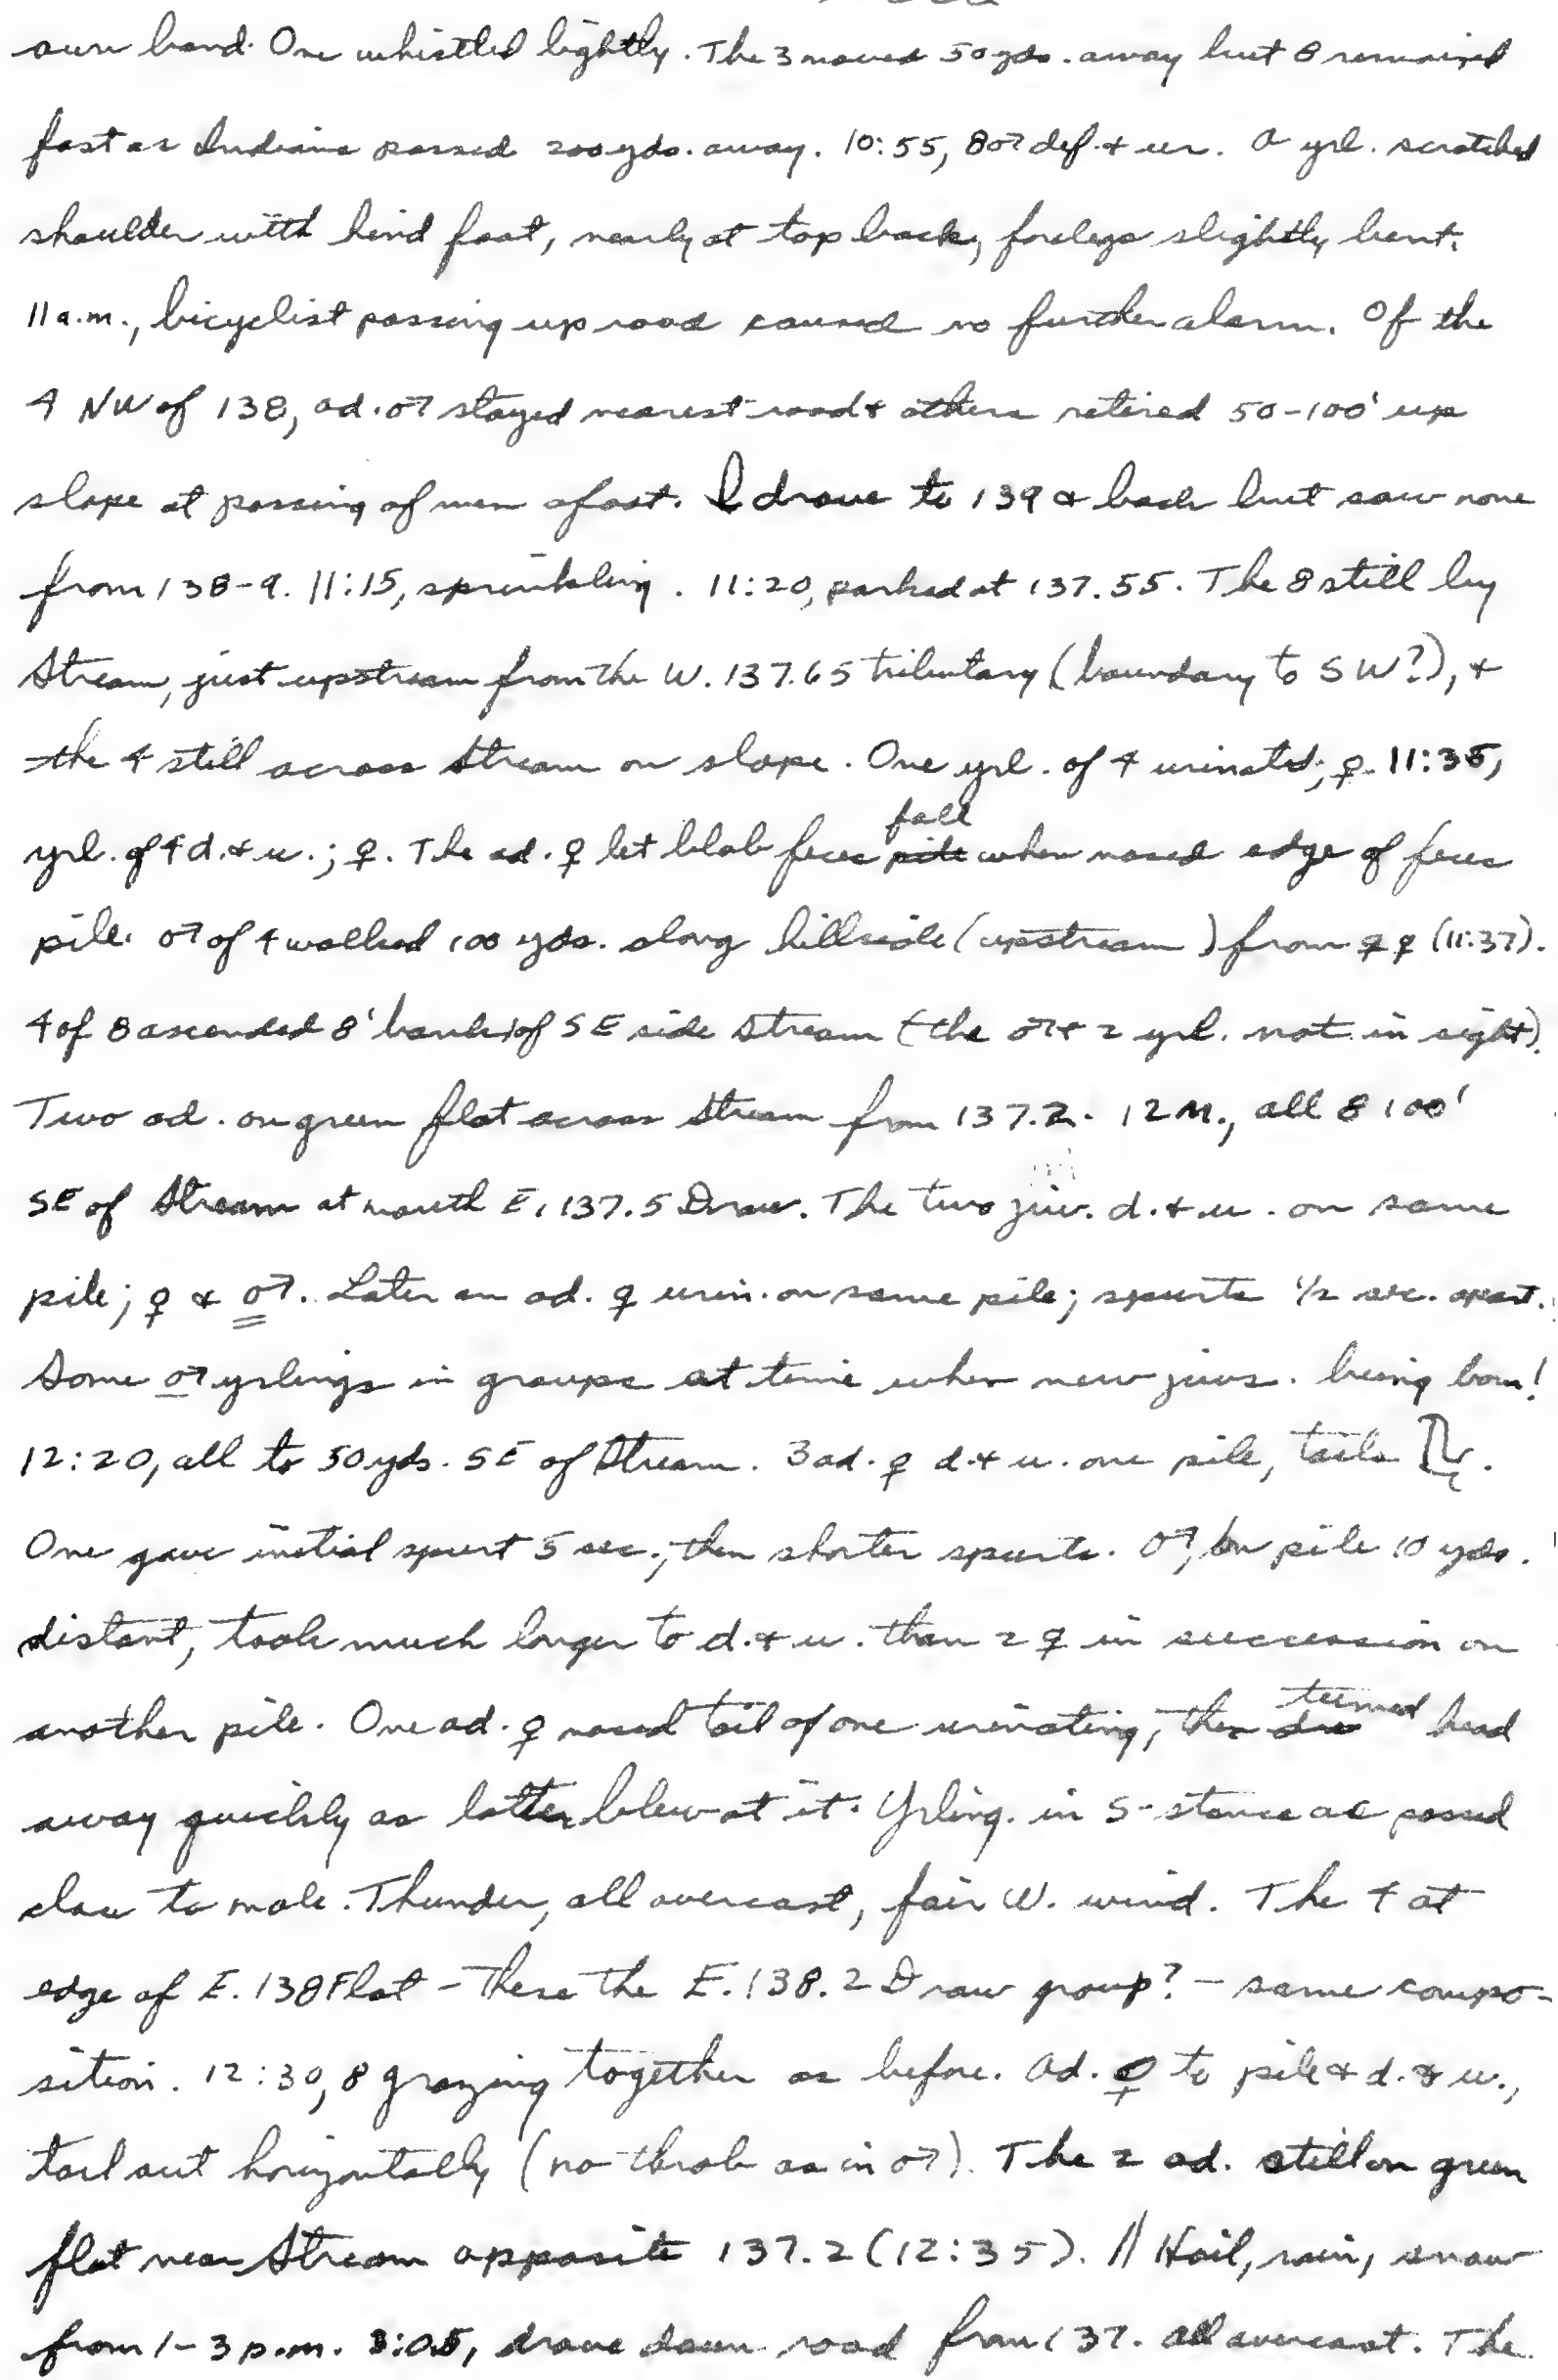 own band. One whistled lightly. The 3 moved 50 yds. away but 8 remained
fast as Indians passed 200 yds. away. 10:55, 8 ♂ def. & ur. A yrl. scratched
shoulder with hind foot, nearly at top back, forelegs slightly bent.
11 a.m., bicyclist passing up road caused no further alarm. Of the
4 NW of 138, ad. ♂ stayed nearest road & others retired 50-100' up
slope at passing of men afoot. I drove to 139 & back but saw none
from 138-9. 11:15, sprinkling. 11:20, parked at 137.55. The 8 still by
Stream, just upstream from the W. 137.65 tributary (boundary to SW?), &
the 4 still across Stream on slope. One yrl. of 4 urinated; ♀. 11:35,
yrl. of 4 d. & u.; ♀. The ad. ♀ let blob feces fall when nosed edge of feces
pile. ♂ of 4 walked 100 yds. along hillside (upstream) from ♀♀ (11:37).
4 of 8 ascended 8' bank of SE side Stream (the ♂ & 2 yrl. not in sight).
Two ad. on green flat across Stream from 137.2. 12 M., all 8 100'
SE of Stream at mouth E. 137.5 Draw. The two juv. d. & u. on same
pile; ♀ & ♂. Later an ad. ♀ urin. on same pile; spurts 1/2 sec. apart.
Some ♂ yrlings in groups at time when new juvs. being born!
12:20, all to 50 yds. SE of Stream. 3 ad. ♀ d. & u. one pile, tails .
One gave initial spurt 5 sec.; then shorter spurts. ♂, on pile 10 yds.
distant, took much longer to d. & u. than 2 ♀ in succession on
another pile. One ad. ♀ nosed tail of one urinating, then turned head
away quickly as latter blew at it. Yrling. in S-stance as passed
close to male. Thunder, all overcast, fair W. wind. The 4 at
edge of E. 138 Flat - These the E. 138.2 Draw group? - same compo-
sition. 12:30, 8 grazing together as before. Ad. ♀ to pile & d. & u.,
tail out horizontally (no throb as in ♂). The 2 ad. still on green
flat near Stream opposite 137.2 (12:35). // Hail, rain, snow
from 1-3 p.m. 3:05, drove down road from 137. All overcast. The